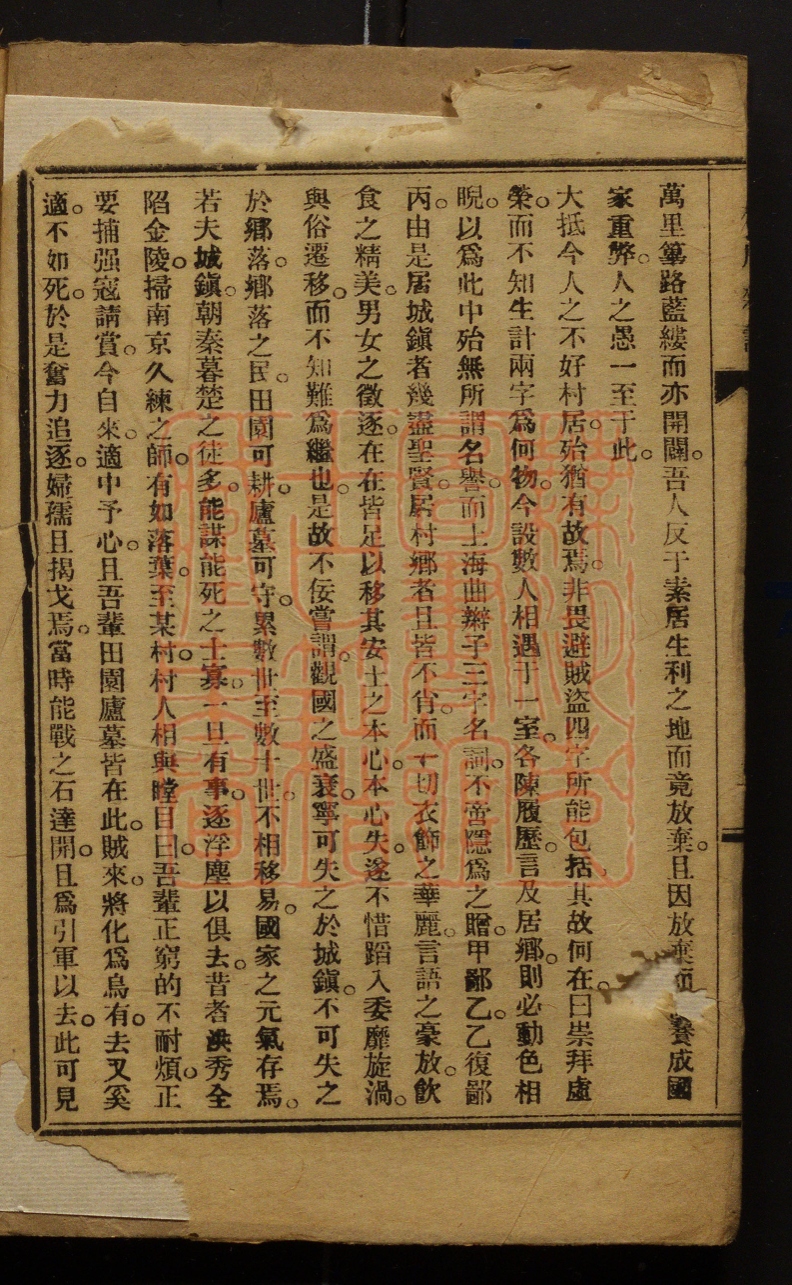 萬里篳路藍縷而亦開闢。吾人反于素居生利之地而竟放棄。且因放棄 養成國
家重弊。人之愚一至于此。
大抵今人之不好村居。殆猶有故焉。非畏避賊盜四字所能包括。其故何在。曰崇拜虛
榮。而不知生計兩字爲何物。今設數人相遇于一室。各陳履歷。言及居鄉。則必動色相
睨。以爲此中殆無所謂名譽。而上海曲辮子三字名詞。不啻隱爲之贈。甲鄙乙。乙復鄙
丙。由是居城鎮者幾盡聖賢。居村鄉者且皆不肖。而一切衣飾之華麗。言語之豪放。飲
食之精美。男女之徵逐。在在皆足以移其安土之本心。本心失。遂不惜蹈入委靡旋渦。
與俗遷移。而不知難爲繼也。是故不佞嘗謂。觀國之盛衰。寧可失之於城鎮。不可失之
於鄉落。鄉落之民。田園可耕。廬墓可守。累數世至數十世。不相移易。國家之元氣存焉。
若夫城鎮。朝秦暮楚之徒多。能謀能死之士寡。一旦有事。逐浮塵以俱去。昔者洪秀全
陷金陵。掃南京久練之師。有如落葉。至某村。村人相與瞠目曰。吾輩正窮的不耐煩。正
要捕强寇請賞。今自來。適中予心。且吾輩田園廬墓皆在此。賊來。將化爲烏有。去又奚
適。不如死。於是奮力追逐。婦孺且揭戈焉。當時能戰之石達開。且爲引軍以去。此可見